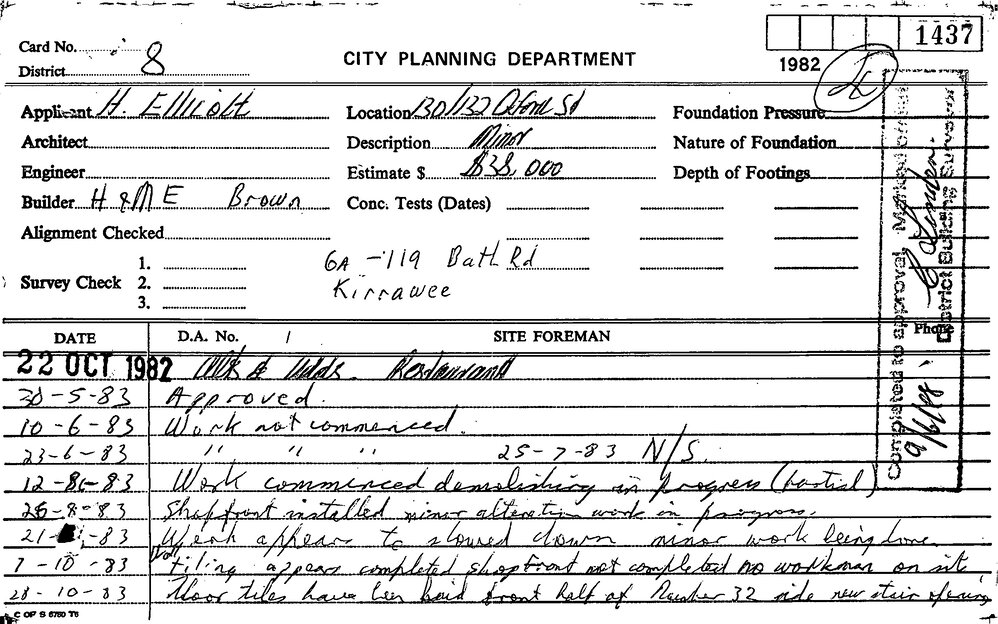 1437
Card No. 8
CITY PLANNING DEPARTMENT
1982
District
Applicant H. Elliott Location 130/132 Oxford St Foundation Pressure
Architect Description Minor Nature of Foundation
Engineer Estimate $ $38,000 Depth of Footings
Builder H & M E Brown Conc. Tests (Dates)
Alignment Checked
6A - 119 Bath Rd
Kirrawee
Survey Check 1.
2.
3.
Completed to approval. Marked off
9/6/88
District Building Surveyor
Phone
DATE D.A. No. / SITE FOREMAN
22 OCT 1982 Alts & Adds. Restaurant
30-5-83 Approved.
10-6-83 Work not commenced.
23-6-83 " " " 25-7-83 N/S.
12-8-83 Work commenced demolishing in progress (partial)
26-8-83 Shopfront installed minor alteration work in progress.
21- -83 Work appears to slowed down minor work being done.
7-10-83 Wall tiling appears completed shopfront not completed no workman on site
28-10-83 Floor tiles have been laid front half of Number 32 side new stair opening
C OF S 6760 T6